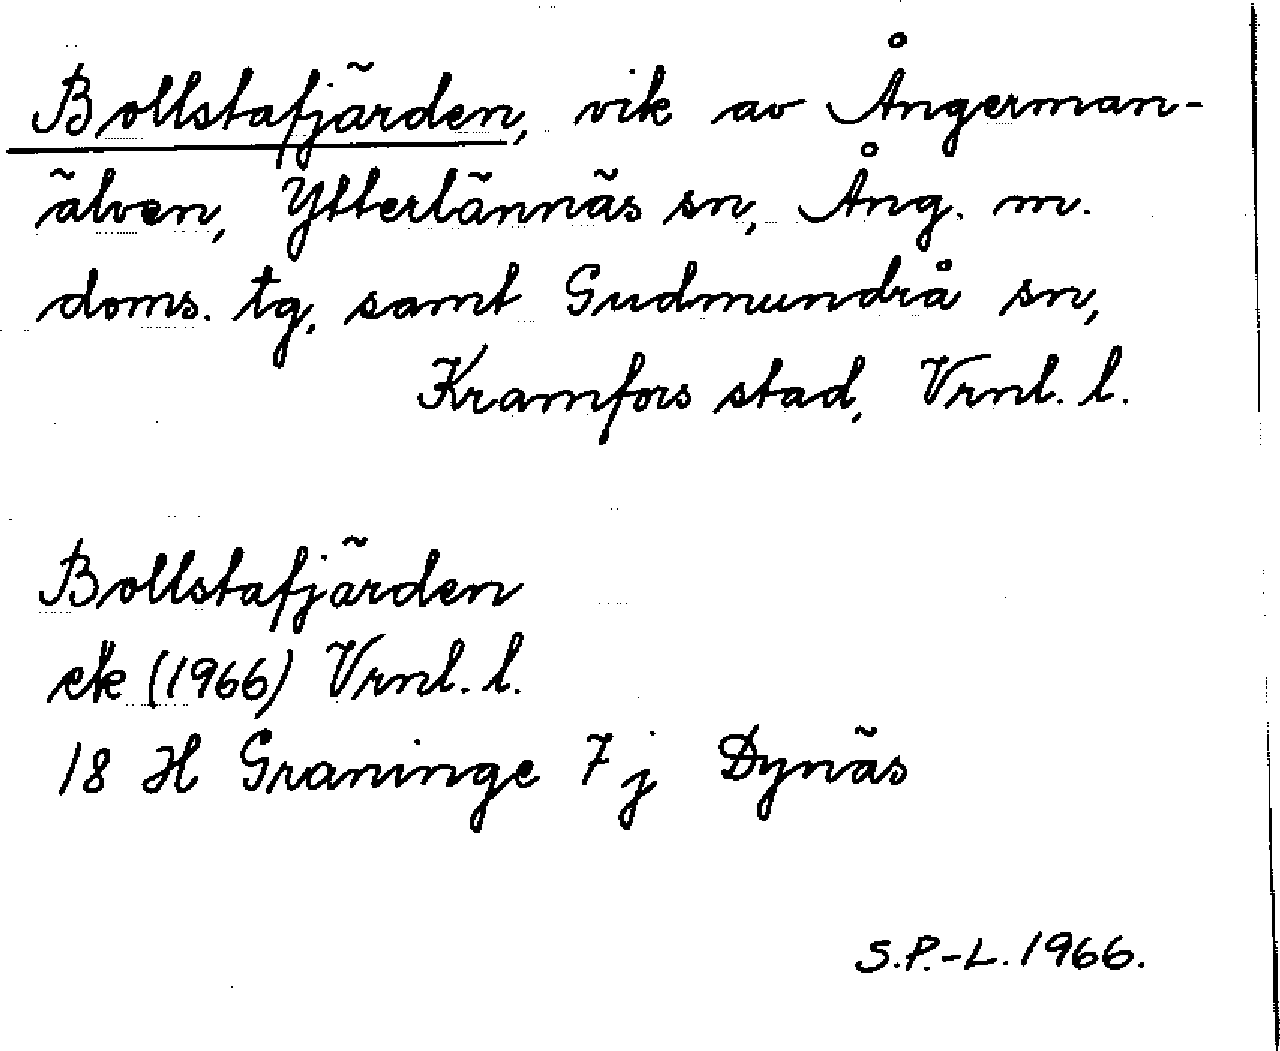 Bollstafjärden, vik av Ångerman-
älven, Ytterlännäs sn, Ång. m.
doms. tg. samt Gudmundrå sn,
Kramfors stad, Vrnl. l.
Bollstafjärden
ek (1966) Vrnl. l.
18 H Graninge 7 j Dynäs
S.P.-L. 1966.